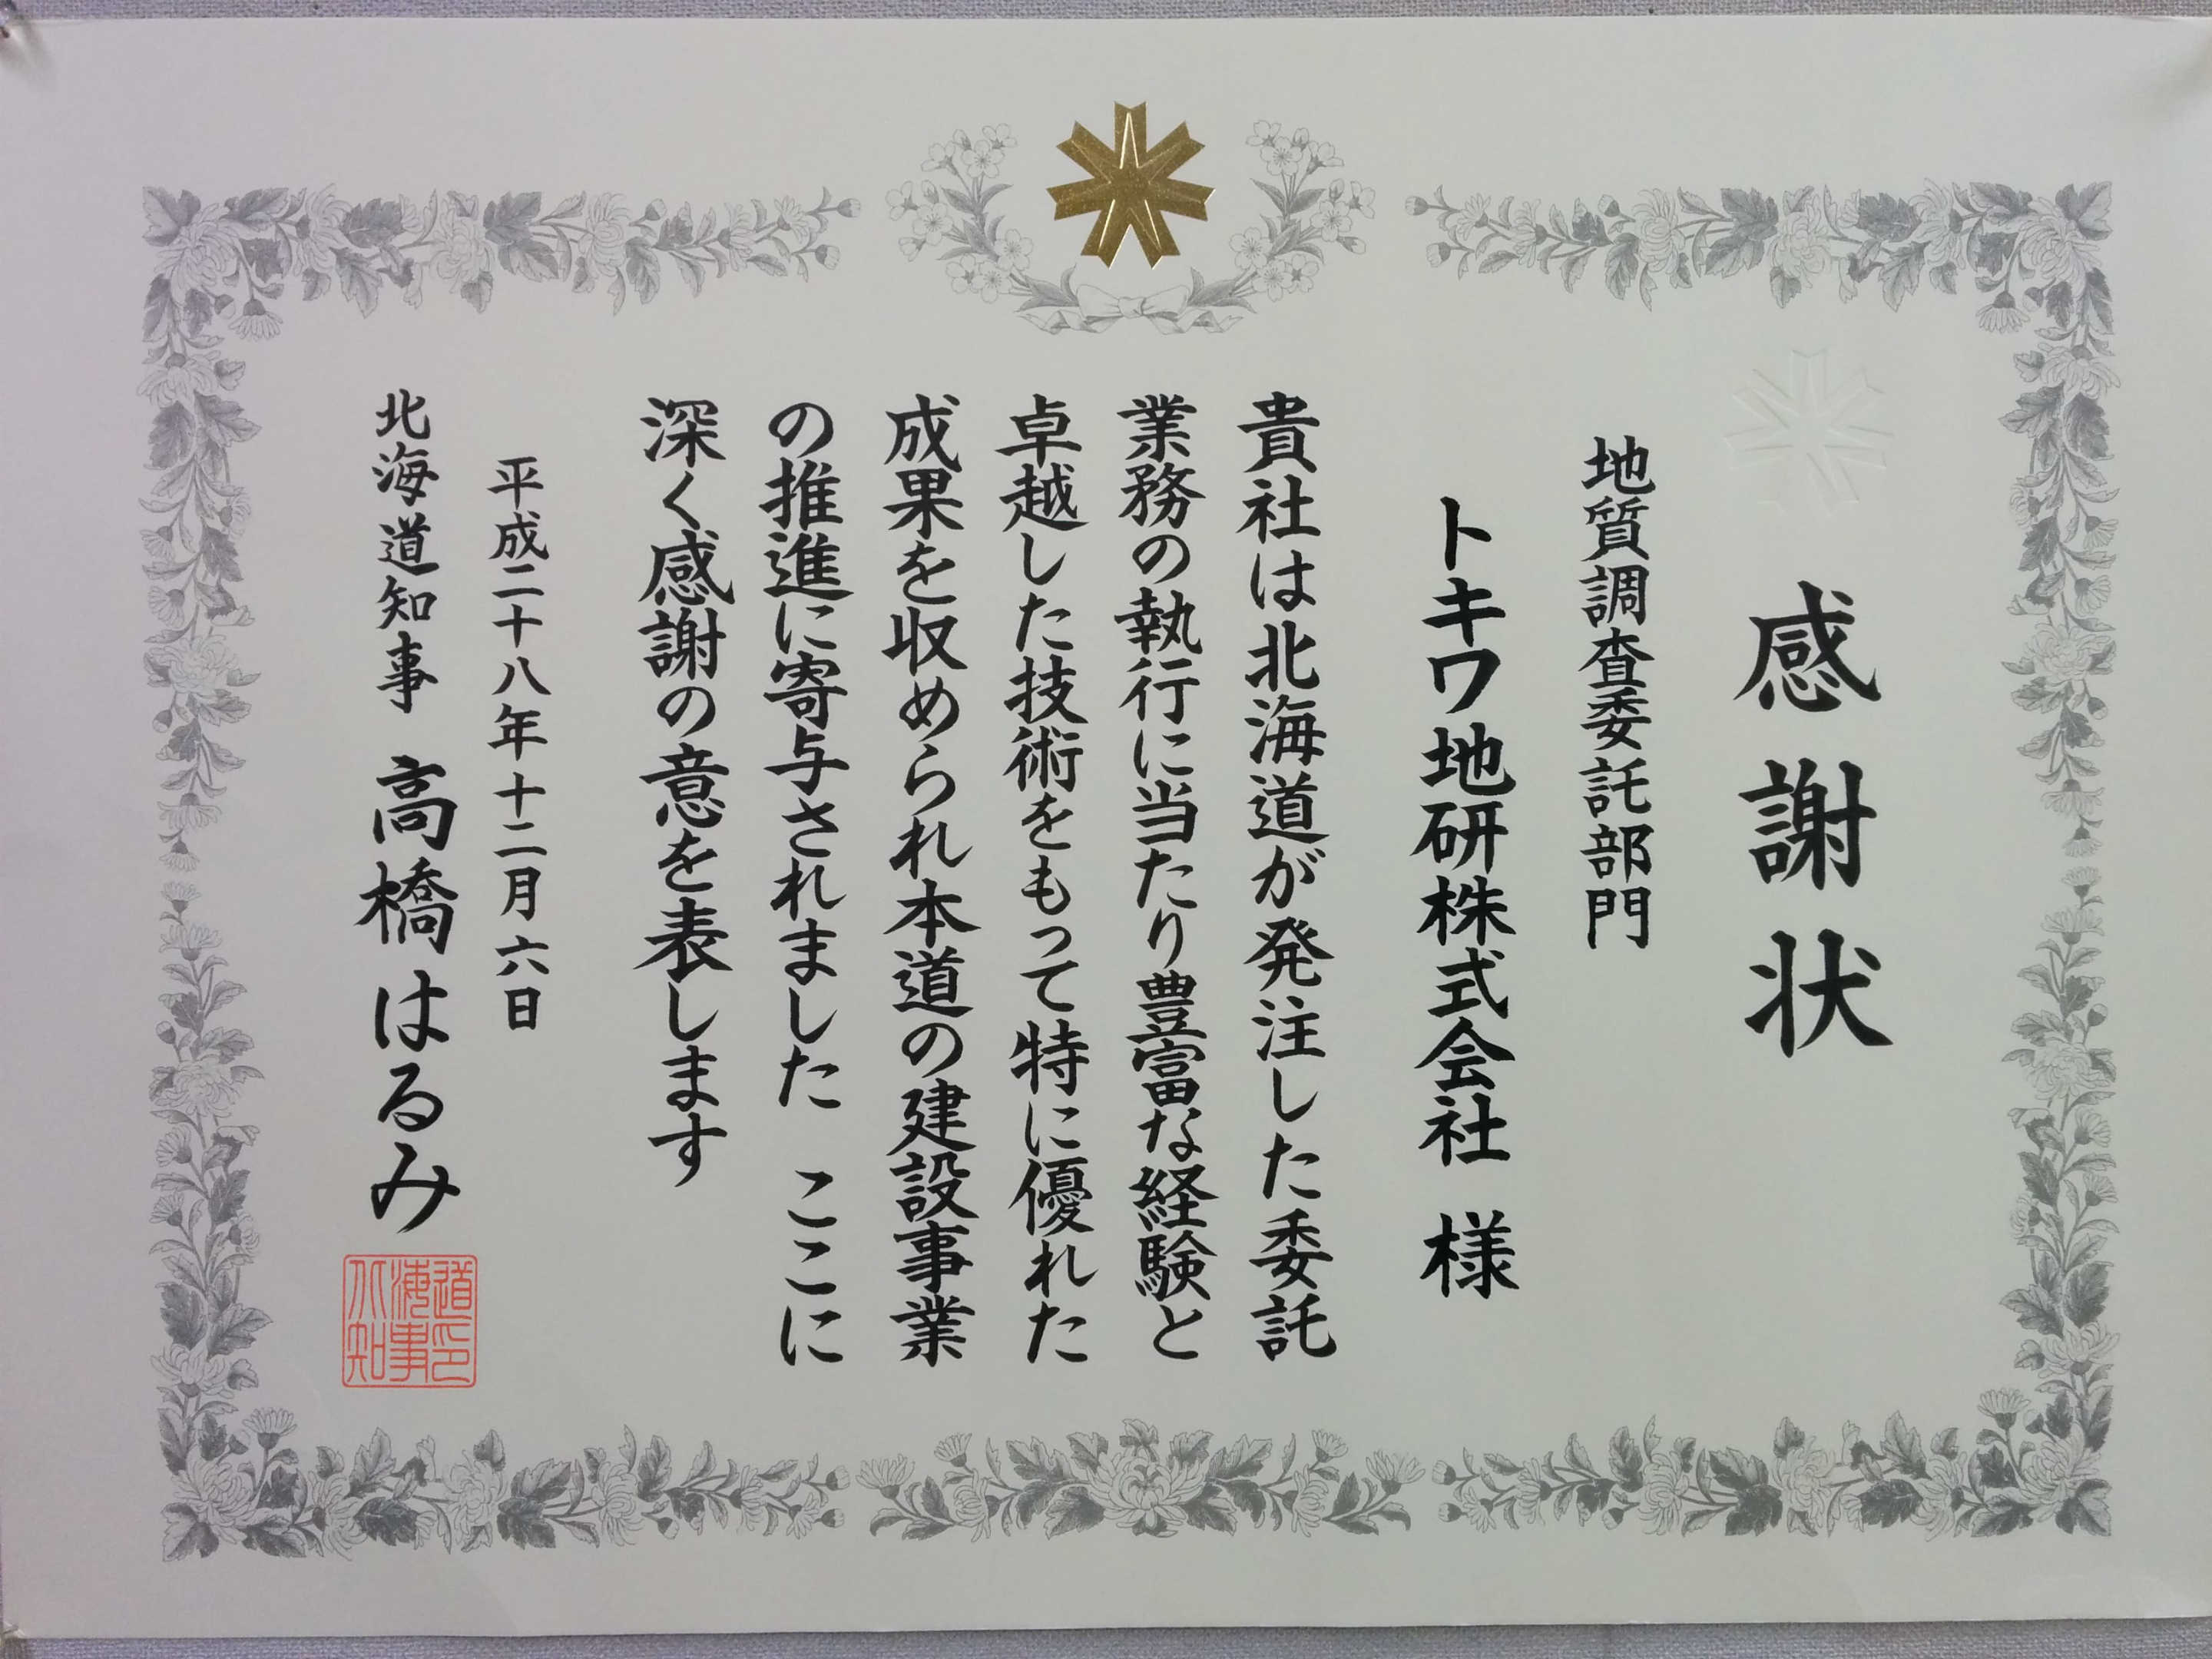 感謝状
地質調査委託部門
トキワ地研株式会社 様
貴社は北海道が発注した委託
業務の執行に当たり豊富な経験と
卓越した技術をもって特に優れた
成果を収められ本道の建設事業
の推進に寄与されました ここに
深く感謝の意を表します
平成二十八年十二月六日
北海道知事 高橋はるみ
道印
海事
北知